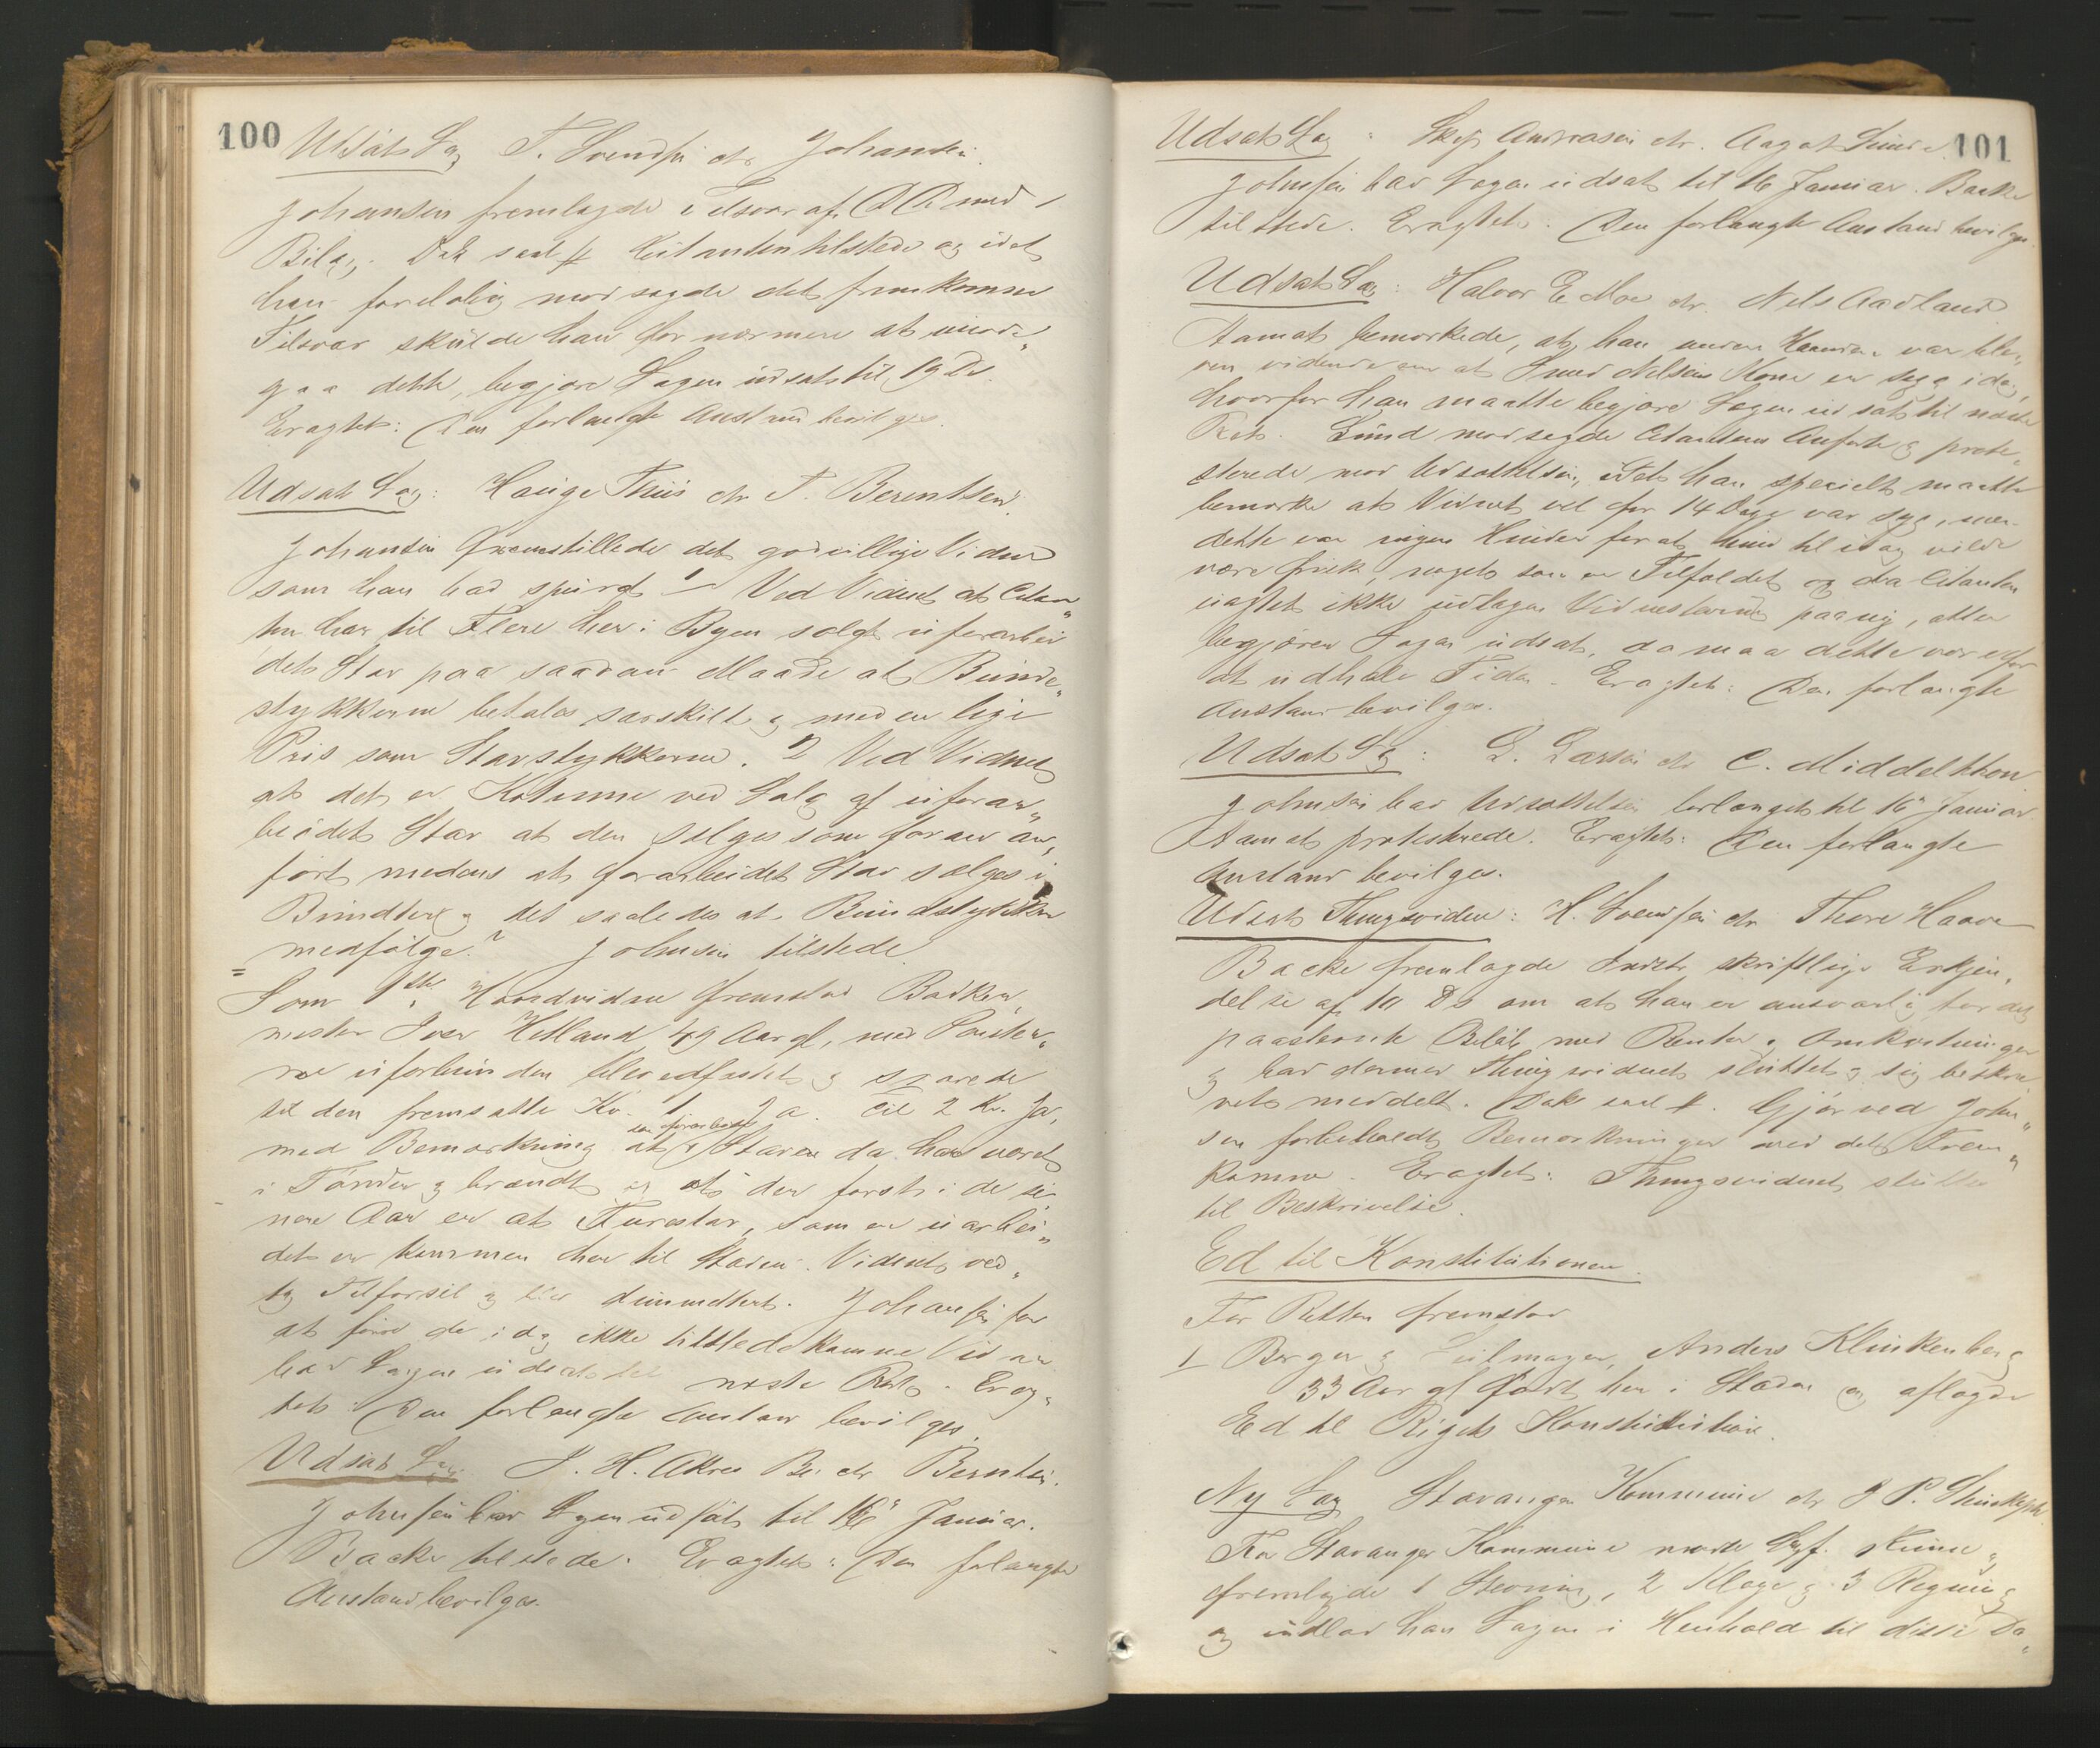 100
Udsat Sag T. Svendsen ctr Johansen.
Johansen fremlagde Tilsvar af D D med 1
Bilag. Dok sael # Citanten tilstede og idet
han foreløbig modsagde det fremkomne
Tilsvar skulde han for nærmere at imøde„
gaa dette, begjære Sagen udsat til 19 Ds.
Eragtet: Den forlangte Anstand bevilges.
Udsat Sag: Hauge Thiis ctr T. Berentsen.
Johansen fremstillede det godvillige Vidne
som han bad spurgt 1 Ved Vidnet at Citan„
ten har til Flere her i Byen solgt uforarbei
det Stav paa saadan Maade at Bunde„
stykkerne betales særskilt og med en lige
Pris som Stavstykkerne. 2 Ved Vidnet
at det er Kotume ved Salg af uforar„
beidet Stav at den sælges som foran an„
ført medens at forarbeidet Stav sælges i
Bundter og det saaledes at Bundstykker
medfølge? Johnsen tilstede
Som 1ste Hovedvidne fremstod Bødker„
mester Iver Helland 49 Aar gl, med Parter„
ne uforbunden edfæstet og svarede
til den fremsatte Kv. 1 Ja. til 2 Kv. Ja,
med Bemærkning at som forarbeidet Staven da har været
i Tønder og brændt og at det først i de se
nere Aar er at Furestav, som er uarbei„
det er kommen her til Staden. Vidnet ved„
tog Tilførsel og blev dimitteret. Johansen for
at føre de idag ikke tilstedekomne Vidner
bad Sagen udsat til næste Ret. Erag„
tet: Den forlangte Anstand bevilges.
Udsat Sag J. H. Akre Bo ctr Berntsen.
Johnsen bad Sagen udsat til 16 Januar.
Backe tilstede. Eragtet: Den forlangte
Anstand bevilges.
101
Udsat Sag: Andreasen ctr. Aagot
Johnsen bad Sagen udsat til 16 Januar. Backe
tilstede. Eragtet: Den forlangte Anstand bevilges.
Udsat Sag: Halvor E Moe ctr. Nels Aadland
Aamot bemærkede, at han under Haanden var ble„
ven vidende om at Smed Nelsens Kone er syg idag,
hvorfor han maatte begjære Sagen udsat til næste
Ret. Lund modsagde Citantens Anførte og prote„
sterede mod Udsættelsen, idet han specielt maatte
bemærke at Vidnet vel for 14 Dage var syg, men
dette var ingen Hinder for at hun til idag vilde
være frisk, noget som er Tilfældet og da Citanten
uagtet ikke udtagen Vidnestevning paa ny, atter
begjærer Sagen udsat, da maa dette være for
at udhale Tiden. Eragtet: Den forlangte
Anstand bevilges.
Udsat Sag: L. Larsen ctr C. Middelthon
Johnsen bad Udsættelsen forlænget til 16 Januar.
Aamot protesterede. Eragtet: Den forlangte
Anstand bevilges.
Udsat Thingsvidne: H. Svendsen ctr. Thore Haave
Backe fremlagde Indstr. skriftlige Erkjen„
delse af 10 Ds om at han er ansvarlig for det
paastevnte Beløb med Renter og Omkostninger
og bad dermed Thingsvidnet sluttet og sig beskre„
vet meddelt. Dok sael #. Gjør ved John„
sen forbeholdt Bemærkninger ved det Frem„
komne. Eragtet: Thingsvidnet sluttes
til Beskrivelse.
Ed til Konstitutionen.
For Retten fremstod
1 Borger og Seilmager, Anders Klinkenberg
33 Aar gl født her i Staden og aflagde
Ed til Rigets Konstitution.
Ny Sag Stavanger Kommune ctr J P.
For Stavanger Kommune mødte Sagf.
fremlagde 1 Stevning, 2 Klage og 3 Regning
og indlod han Sagen i Henhold til disse Do„